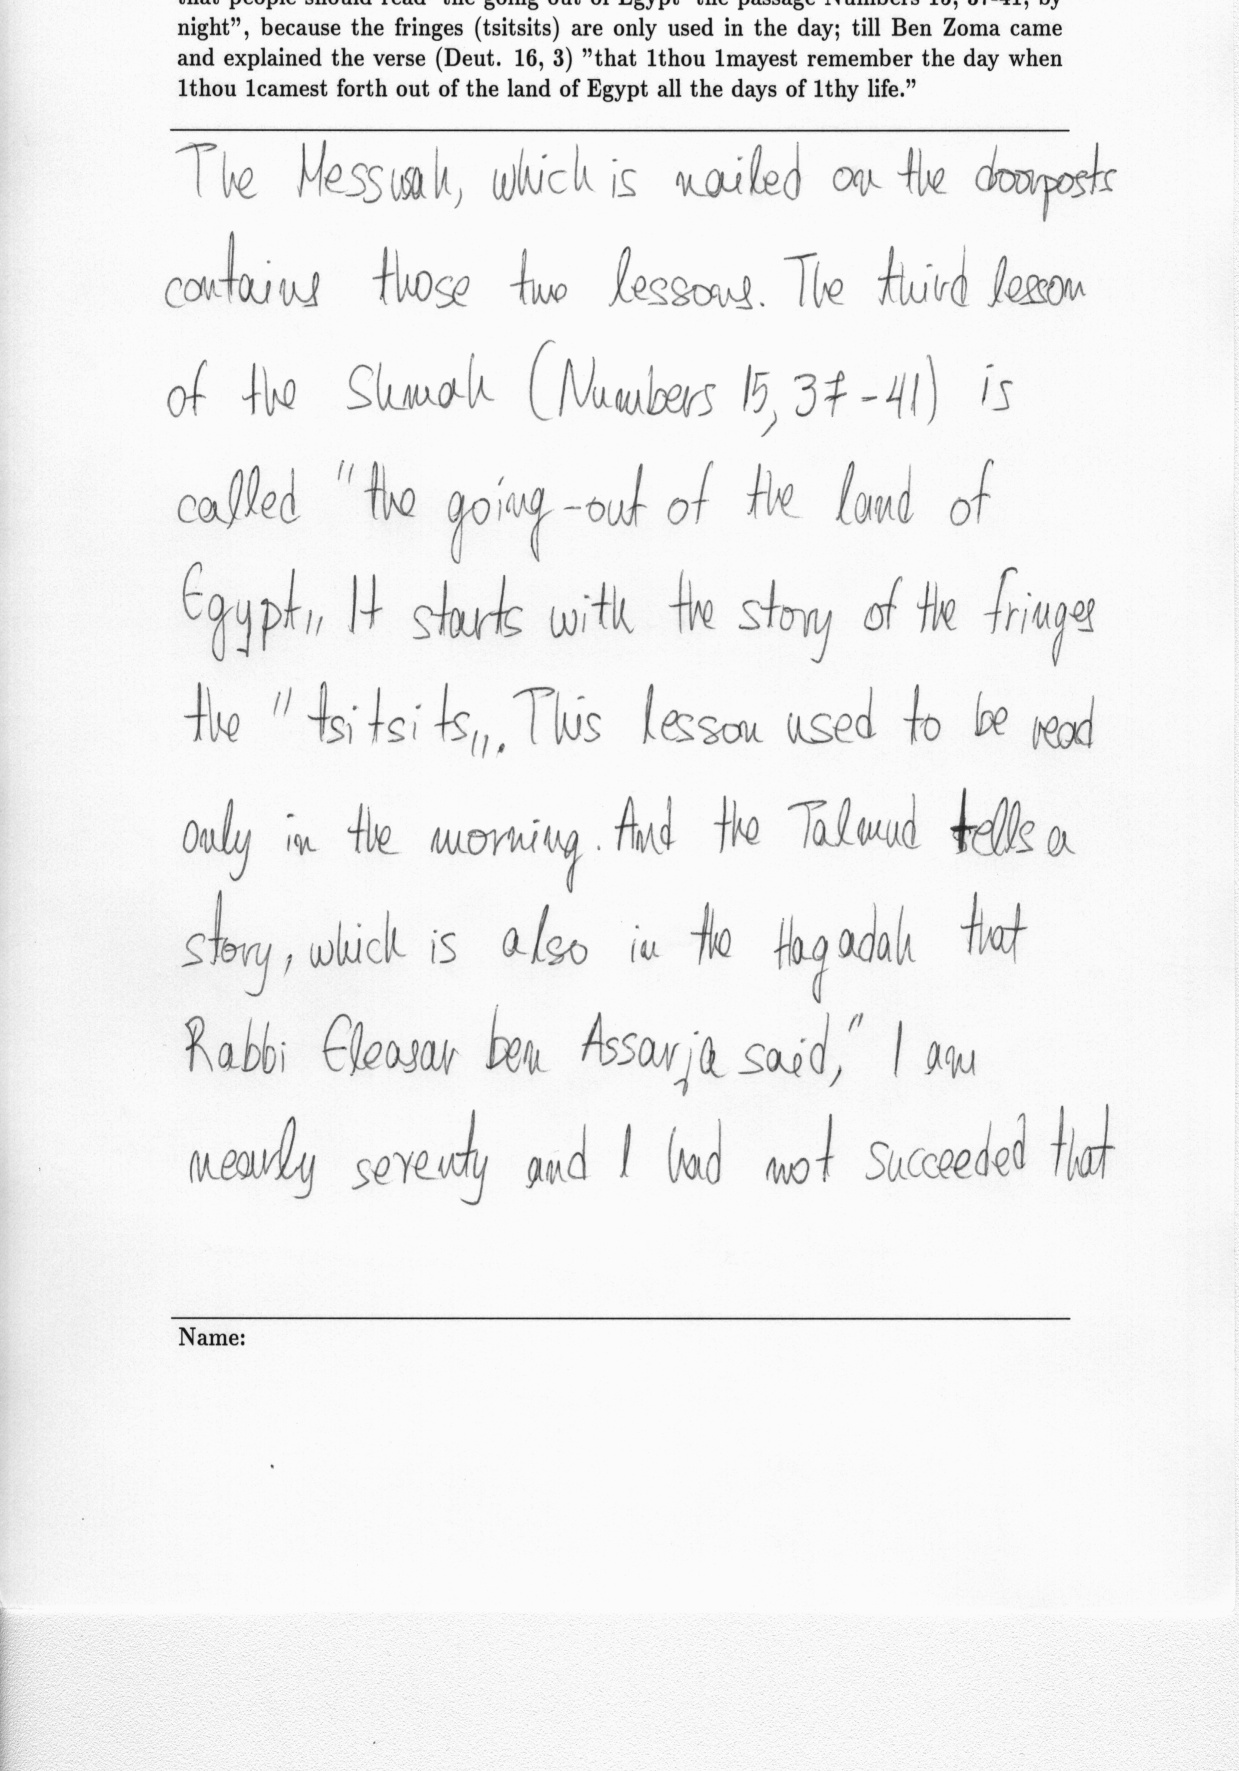 that people should read "the going out of Egypt" the passage Numbers 15, 37-41, by
night”, because the fringes (tsitsits) are only used in the day; till Ben Zoma came
and explained the verse (Deut. 16, 3) ”that 1thou 1mayest remember the day when
1thou 1camest forth out of the land of Egypt all the days of 1thy life.”
The Messusah, which is nailed on the doorposts
contains those two lessons. The third lesson
of the Shmah (Numbers 15, 37-41) is
called "the going-out of the land of
Egypt„ It starts with the story of the fringes
the "tsitsits„. This lesson used to be read
only in the morning. And the Talmud tells a
story, which is also in the Hagadah that
Rabbi Eleasar ben Assarja said," I am
nearly seventy and I had not succeeded that
Name: